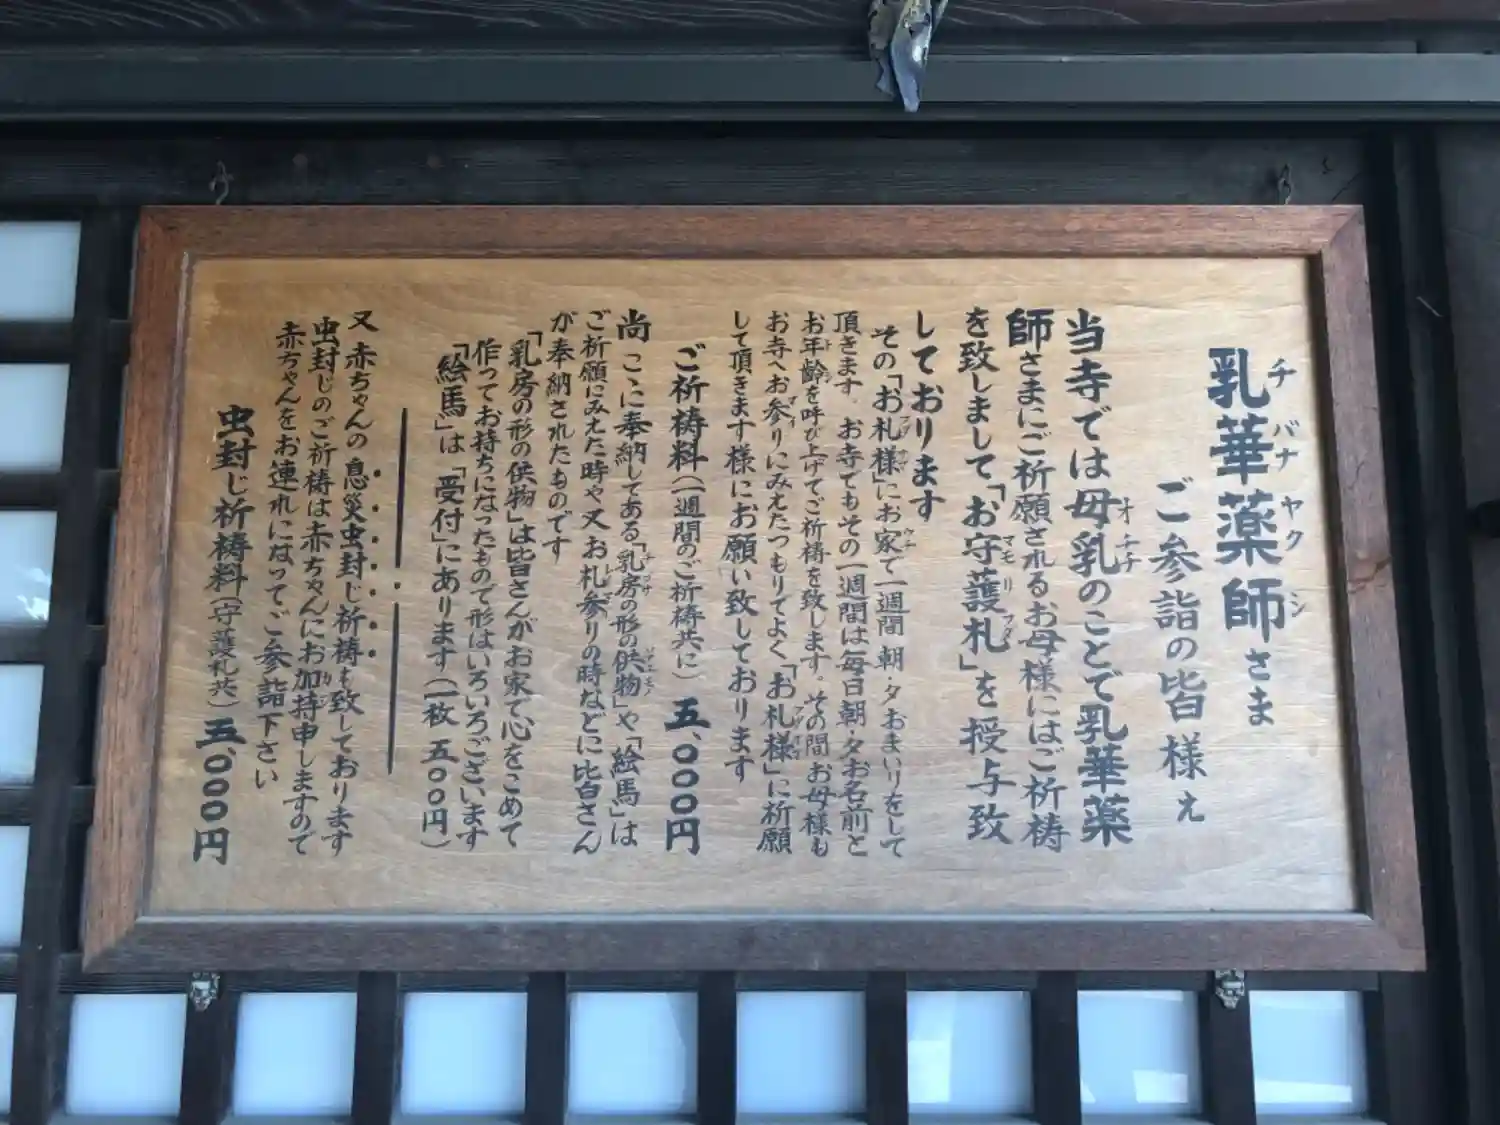 乳華薬師さま
チバナヤクシ
ご参詣の皆様え
当寺では母乳のことで乳華薬
オチチ
師さまにご祈願されるお母様にはご祈祷
を致しまして「お守護札」を授与致
マモリフダ
しております
その「お札様」にお家で一週間 朝・夕おまいりをして
頂きます。お寺でもその一週間は毎日朝・夕お名前と
お年齢を呼び上げてご祈祷を致します。その間お母様も
お寺へお参りにみえたつもりでよく「お札様」に祈願
して頂きます様にお願い致しております
ご祈祷料(一週間のご祈祷共に) 五、〇〇〇円
尚 ここに奉納してある「乳房の形の供物」や「絵馬」は
ご祈願にみえた時や又お札参りの時などに皆さん
が奉納されたものです
「乳房の形の供物」は皆さんがお家で心をこめて
作ってお持ちになったもので形はいろいろございます
「絵馬」は「受付」にあります(一枚 五〇〇円)
又 赤ちゃんの息災虫封じ祈祷も致しております
虫封じのご祈祷は赤ちゃんにお加持申しますので
赤ちゃんをお連れになってご参詣下さい
虫封じ祈祷料(守護札共) 五、〇〇〇円